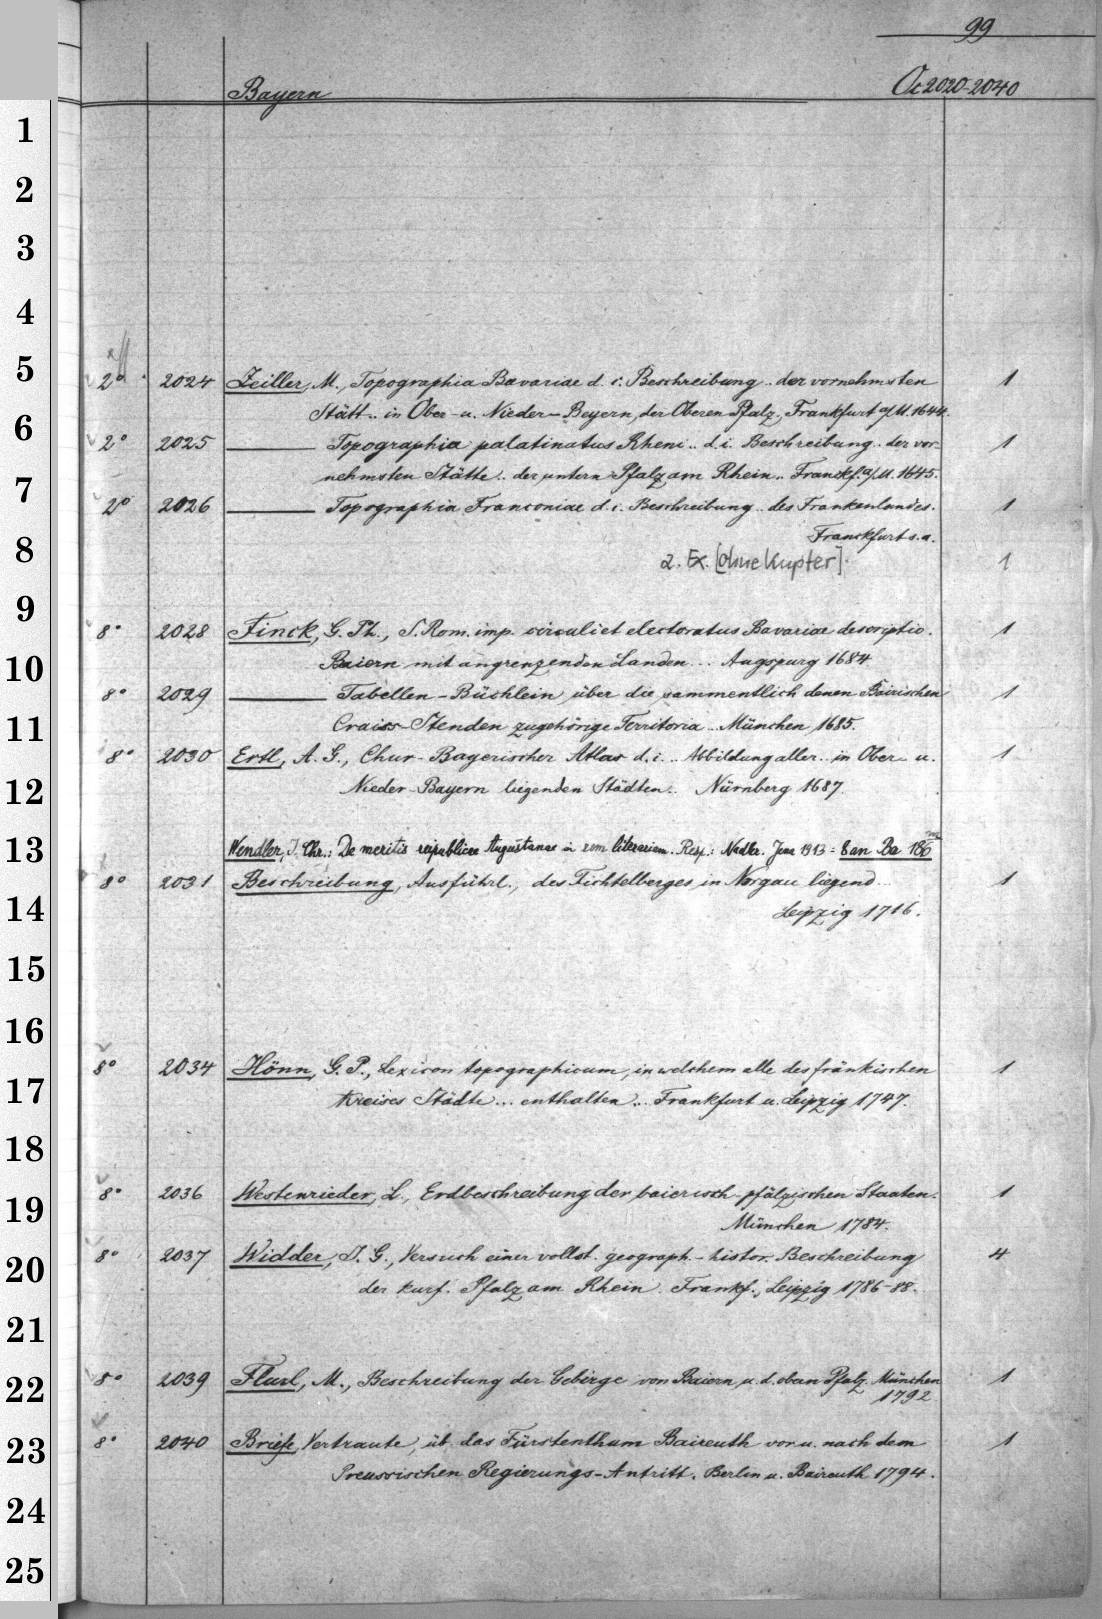 99
Bayern Oc 2020-2040
1
2
3
4
5
2° 2024 Zeiller, M., Topographia Bavariae d. i. Beschreibung .. der vornehmsten 1
Stätt .. in Ober- u. Nieder-Beyern, der Oberen Pfalz, Frankfurt a/M. 1644.
6
2° 2025 ——— Topographia palatinatus Rheni .. d. i. Beschreibung .. der vor- 1
nehmsten Stätte .. der untern Pfalz am Rhein .. Franckf. a/M. 1645.
7
2° 2026 ——— Topographia Franconiae d. i. Beschreibung .. des Frankenlandes. 1
Franckfurt s. a.
8
2. Ex. [ohne Kupfer]. 1
9
8° 2028 Finck, G. Ph., S. Rom. imp. circuli et electoratus Bavariae descriptio. 1
10
Baiern mit angrenzenden Landen ... Augspurg 1684
8° 2029 ——— Tabellen-Büchlein über die sammentlich denen Bairischen 1
11
Craiss-Stenden zugehörige Territoria .. München 1685.
8° 2030 Ertl, A. G., Chur-Bayerischer Atlas d. i. .. Abbildung aller .. in Ober- u. 1
12
Nieder-Bayern liegenden Städten .. Nürnberg 1687.
13
Wendler, J. Chr.: De meritis reipublicae Augustanae in rem literariam. Resp.: Nadler. Jena = 8 an Ba
8° 2031 Beschreibung, Ausführl., des Fichtelberges in Norgau liegend .. 1
14
Leipzig 1716.
15
16
8° 2034 Hönn, G. P., Lexicon topographicum, in welchem alle des fränkischen 1
17
Kreises Städte ... enthalten .. Frankfurt u. Leipzig 1747.
18
8° 2036 Westenrieder, L., Erdbeschreibung der baierisch-pfälzischen Staaten. 1
19
München 1784.
8° 2037 Widder, J. G., Versuch einer vollst. geograph.-histor. Beschreibung 4
20
der kurf. Pfalz am Rhein. Frankf., Leipzig 1786-88.
21
8° 2039 Flurl, M., Beschreibung der Gebirge von Baiern u. d. oberen Pfalz. München 1
22
1792
8° 2040 Briefe, Vertraute, üb. das Fürstenthum Baireuth vor u. nach dem 1
23
Preussischen Regierungs-Antritt. Berlin u. Baireuth 1794.
24
25